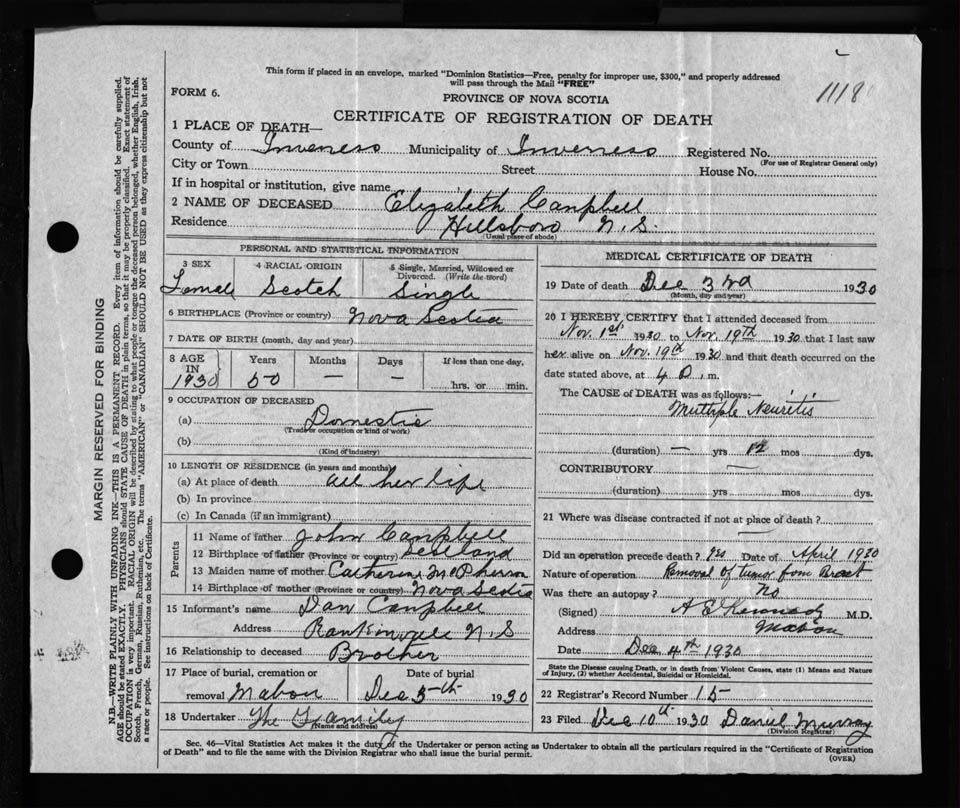 This form if placed in an envelope, marked "Dominion Statistics—Free, penalty for improper use, $300," and properly addressed
will pass through the Mail "FREE"
1118
FORM 6.
PROVINCE OF NOVA SCOTIA
CERTIFICATE OF REGISTRATION OF DEATH
1 PLACE OF DEATH—
County of Inverness Municipality of Inverness Registered No.
(For use of Registrar General only)
City or Town Street House No.
If in hospital or institution, give name
2 NAME OF DECEASED Elizabeth Campbell
Residence Hillsboro N.S.
(Usual place of abode)
PERSONAL AND STATISTICAL INFORMATION
3 SEX 4 RACIAL ORIGIN 5 Single, Married, Widowed or
Divorced. (Write the word)
Female Scotch Single
6 BIRTHPLACE (Province or country) Nova Scotia
7 DATE OF BIRTH (month, day and year)
8 AGE IN Years Months Days If less than one day,
1930 50 — — hrs. or min.
9 OCCUPATION OF DECEASED
(a) Domestic
(Trade or occupation or kind of work)
(b)
(Kind of industry)
10 LENGTH OF RESIDENCE (in years and months)
(a) At place of death all her life
(b) In province
(c) In Canada (if an immigrant)
Parents
11 Name of father John Campbell
12 Birthplace of father (Province or country)
13 Maiden name of mother Catherine McPherson
14 Birthplace of mother (Province or country) Nova Scotia
15 Informant's name Dan Campbell
Address N.S
16 Relationship to deceased Brother
17 Place of burial, cremation or Date of burial
removal Mabou Dec 5th 1930
18 Undertaker The Family
(Name and address)
MEDICAL CERTIFICATE OF DEATH
19 Date of death Dec 3rd 1930
(Month, day and year)
20 I HEREBY CERTIFY that I attended deceased from
Nov. 1st 1930 to Nov. 19th 1930 that I last saw
her alive on Nov. 19th 1930 and that death occurred on the
date stated above, at 4 P. m.
The CAUSE of DEATH was as follows:—
Multiple Neuritis
(duration) — yrs 12 mos dys.
CONTRIBUTORY —
(duration) yrs mos dys.
21 Where was disease contracted if not at place of death?
—
Did an operation precede death? Yes Date of April 1920
Nature of operation Removal of tumor from Breast
Was there an autopsy? No
(Signed) Kennedy M.D.
Address Mabou
Date Dec 4th 1930
State the Disease causing Death, or in death from Violent Causes, state (1) Means and Nature
of Injury, (2) whether Accidental, Suicidal or Homicidal.
22 Registrar's Record Number 15
23 Filed Dec 10th 1930 Daniel Murray
(Division Registrar)
Sec. 46—Vital Statistics Act makes it the duty of the Undertaker or person acting as Undertaker to obtain all the particulars required in the "Certificate of Registration
of Death" and to file the same with the Division Registrar who shall issue the burial permit.
(OVER)
MARGIN RESERVED FOR BINDING
N.B.—WRITE PLAINLY WITH UNFADING INK—THIS IS A PERMANENT RECORD. Every item of information should be carefully supplied.
AGE should be stated EXACTLY. PHYSICIANS should STATE CAUSE OF DEATH in plain terms, so that it may be properly classified. Exact statement of
OCCUPATION is very important. RACIAL ORIGIN will be described by stating to what people or tongue the deceased person belonged, whether English, Irish,
Scotch, French, German, Russian, Ruthenian, etc. The terms "AMERICAN" or "CANADIAN" SHOULD NOT BE USED as they express citizenship but not
a race or people. See instructions on back of Certificate.